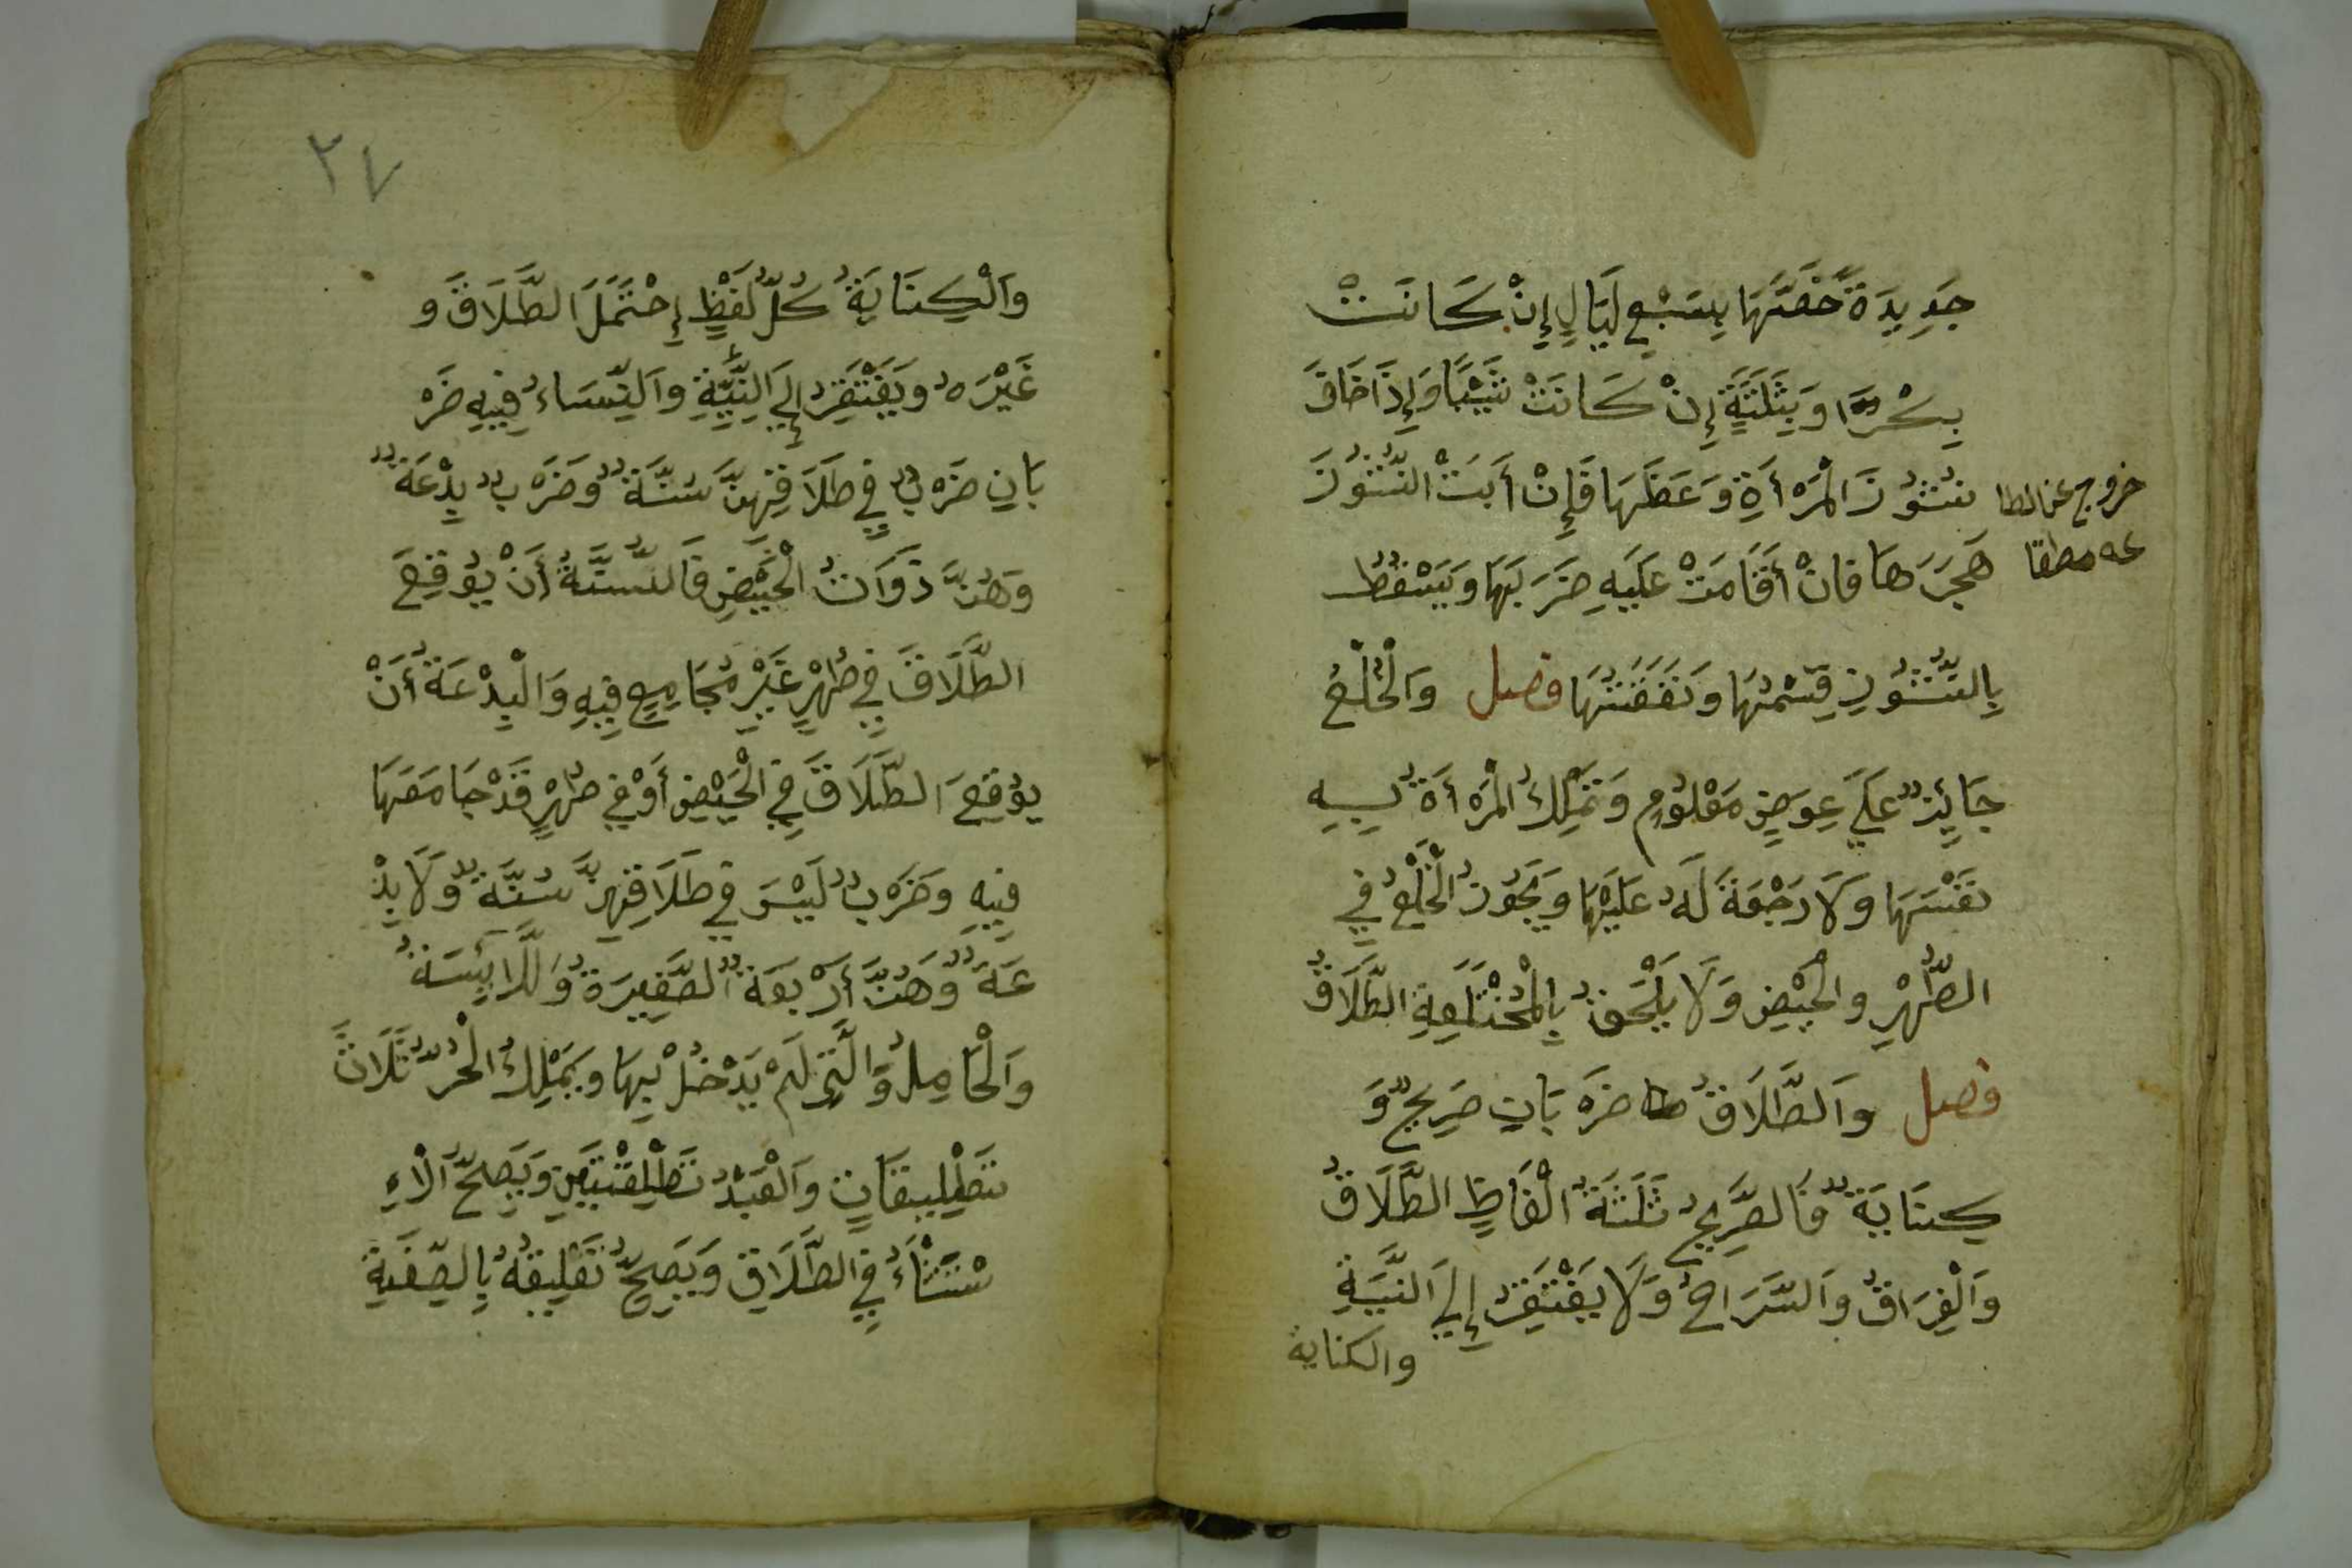 جَدِيدَةً خَصَّهَا بِسَبْعِ لَيَالٍ إِنْ كَانَتْ
بِكْرًا وَبِثَلَثَةٍ إِنْ كَانَتْ ثَيِّبًا وَإِذَا خَافَ
نُشُوزَ الْمَرْأَةِ وَعَظَهَا فَإِنْ أَبَتْ النُّشُوزَ
هَجَرَهَا فَانْ أَقَامَتْ عَلَيْهِ ضَرَبَهَا وَيَسْقُطُ
بِالنُّشُوزِ قِسْمُهَا وَنَفَقَتُهَا فصل وَالْخُلْعُ
جَائِزٌ عَلَى عِوَضٍ مَعْلُومٍ وَتَمْلِكُ الْمَرْأَةُ بِهِ
نَفْسَهَا وَلَا رَجْعَةَ لَهُ عَلَيْهَا وَيَجُوزُ الْخُلْعُ فِي
الطُّهْرِ وَالْحَيْضِ وَلَا يَلْحَقُ بِالْمُخْتَلَعَةِ الطَّلَاقُ
فصل وَالطَّلَاقُ ضَرْبَانِ صَرِيحٌ وَ
كِنَايَةٌ فَالصَّرِيحُ ثَلَثَةُ الْفَاظٍ الطَّلَاقُ
وَالْفِرَاقُ وَالسَّرَاحُ وَلَا يَفْتَقِرُ إِلَى النِّيَّةِ
والكناية
خروج عن الطا
عه مطلقا
٢٧
وَالْكِنَايَةُ كُلُّ لَفْظٍ إِحْتَمَلَ الطَّلَاقَ وَ
غَيْرَهُ وَيَفْتَقِرُ إِلَى النِّيَّةِ وَالنِّسَاءُ فِيهِ ضَرْ
بَانِ ضَرْبٌ فِي طَلَاقِهِنَّ سُنَّةٌ وَضَرْبٌ بِدْعَةٌ
وَهُنَّ ذَوَاتُ الْحَيْضِ فَالسُّنَّةُ أَنْ يُوقِعَ
الطَّلَاقَ فِي طُهْرٍ غَيْرِ مُجَامِعٍ فِيهِ وَالْبِدْعَةُ أَنْ
يُوقِعَ الطَّلَاقَ فِي الْحَيْضِ أَوْ فِي طُهْرٍ قَدْ جَامَعَهَا
فِيهِ وَضَرْبٌ لَيْسَ فِي طَلَاقِهِنَّ سُنَّةٌ وَلَا بِدْ
عَةٌ وَهُنَّ أَرْبَعَةٌ الصَّغِيرَةُ وَالْآئِسَةُ
وَالْحَامِلُ وَالَّتِى لَمْ يَدْخُلْ بِهَا وَيَمْلِكُ الْحُرُّ ثَلَاثَ
تَطْلِيقَاتٍ وَالْعَبْدُ تَطْلِيقَتَيْنِ وَيَصِحُّ الْاِ
سْتِثْنَاءُ فِي الطَّلَاقِ وَيَصِحُّ تَعْلِيقُهُ بِالصِّفَةِ